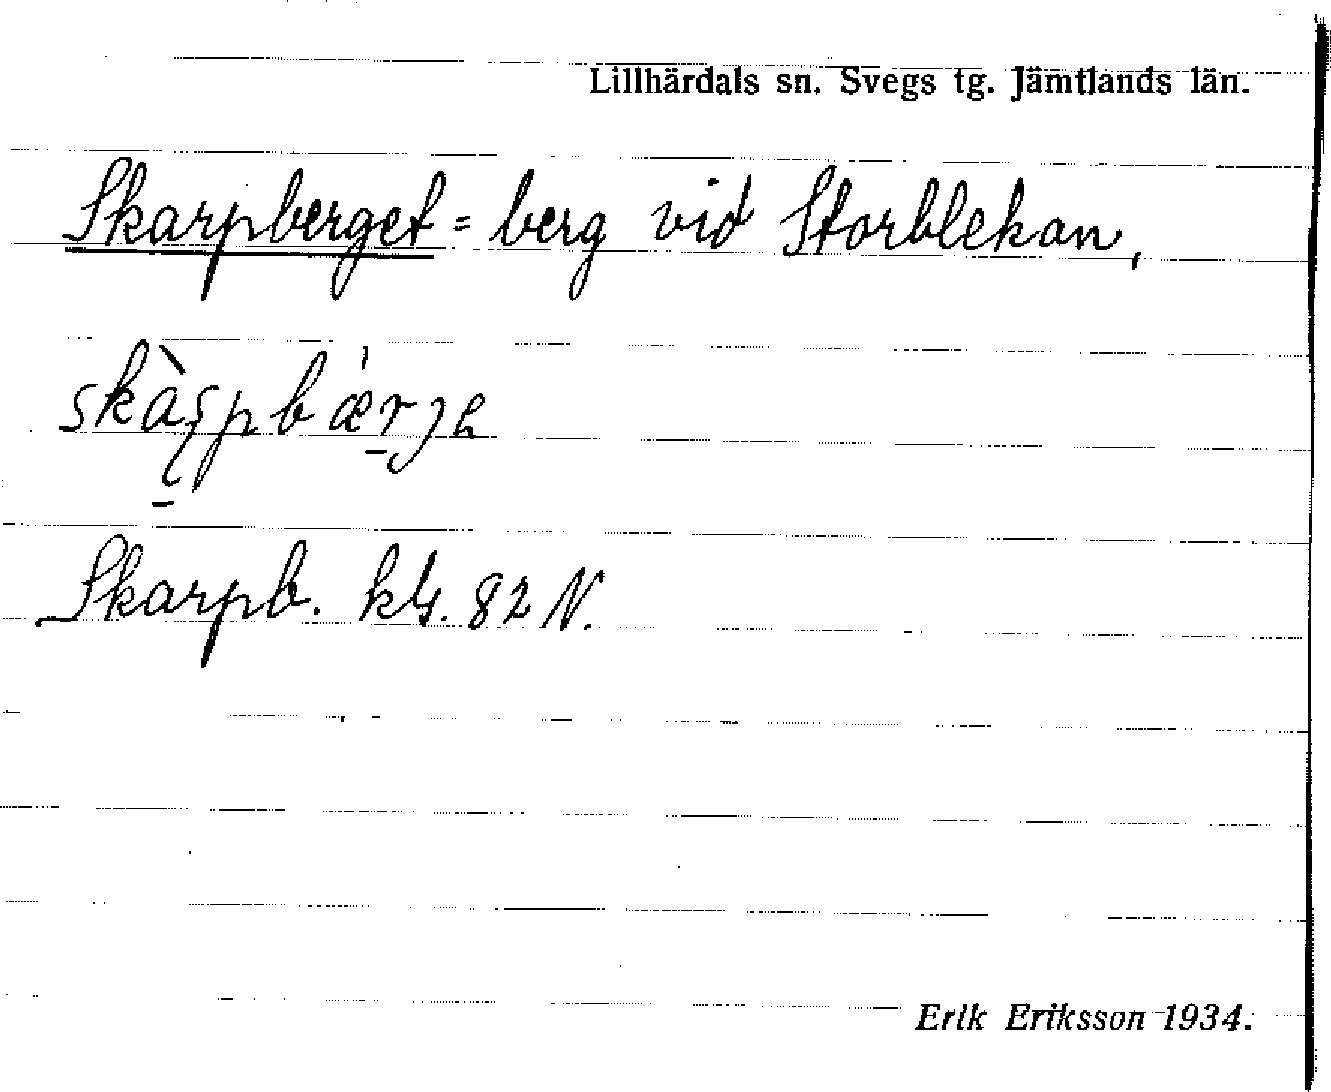 Lillhärdals sn. Svegs tg. Jämtlands län.
Skarpberget = berg vid Storblekan,
Skarpb. kts. 82 N.
Erik Eriksson 1934.